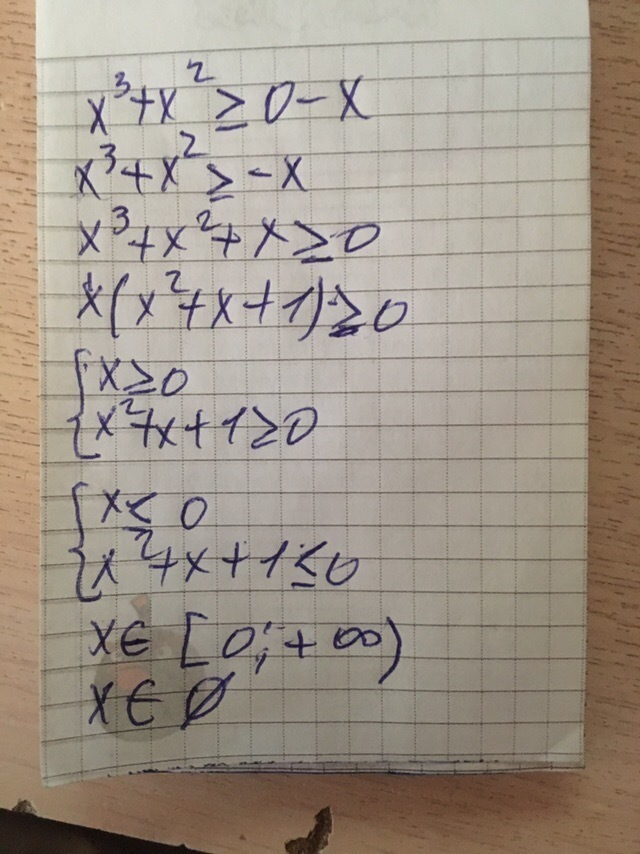 x³+x² ≥ 0-x
x³+x² ≥ -x
x³+x²+x ≥ 0
x(x²+x+1) ≥ 0
{x ≥ 0
{x²+x+1 ≥ 0
{x ≤ 0
{x²+x+1 ≤ 0
x ∈ [0;+∞)
x ∈ ∅